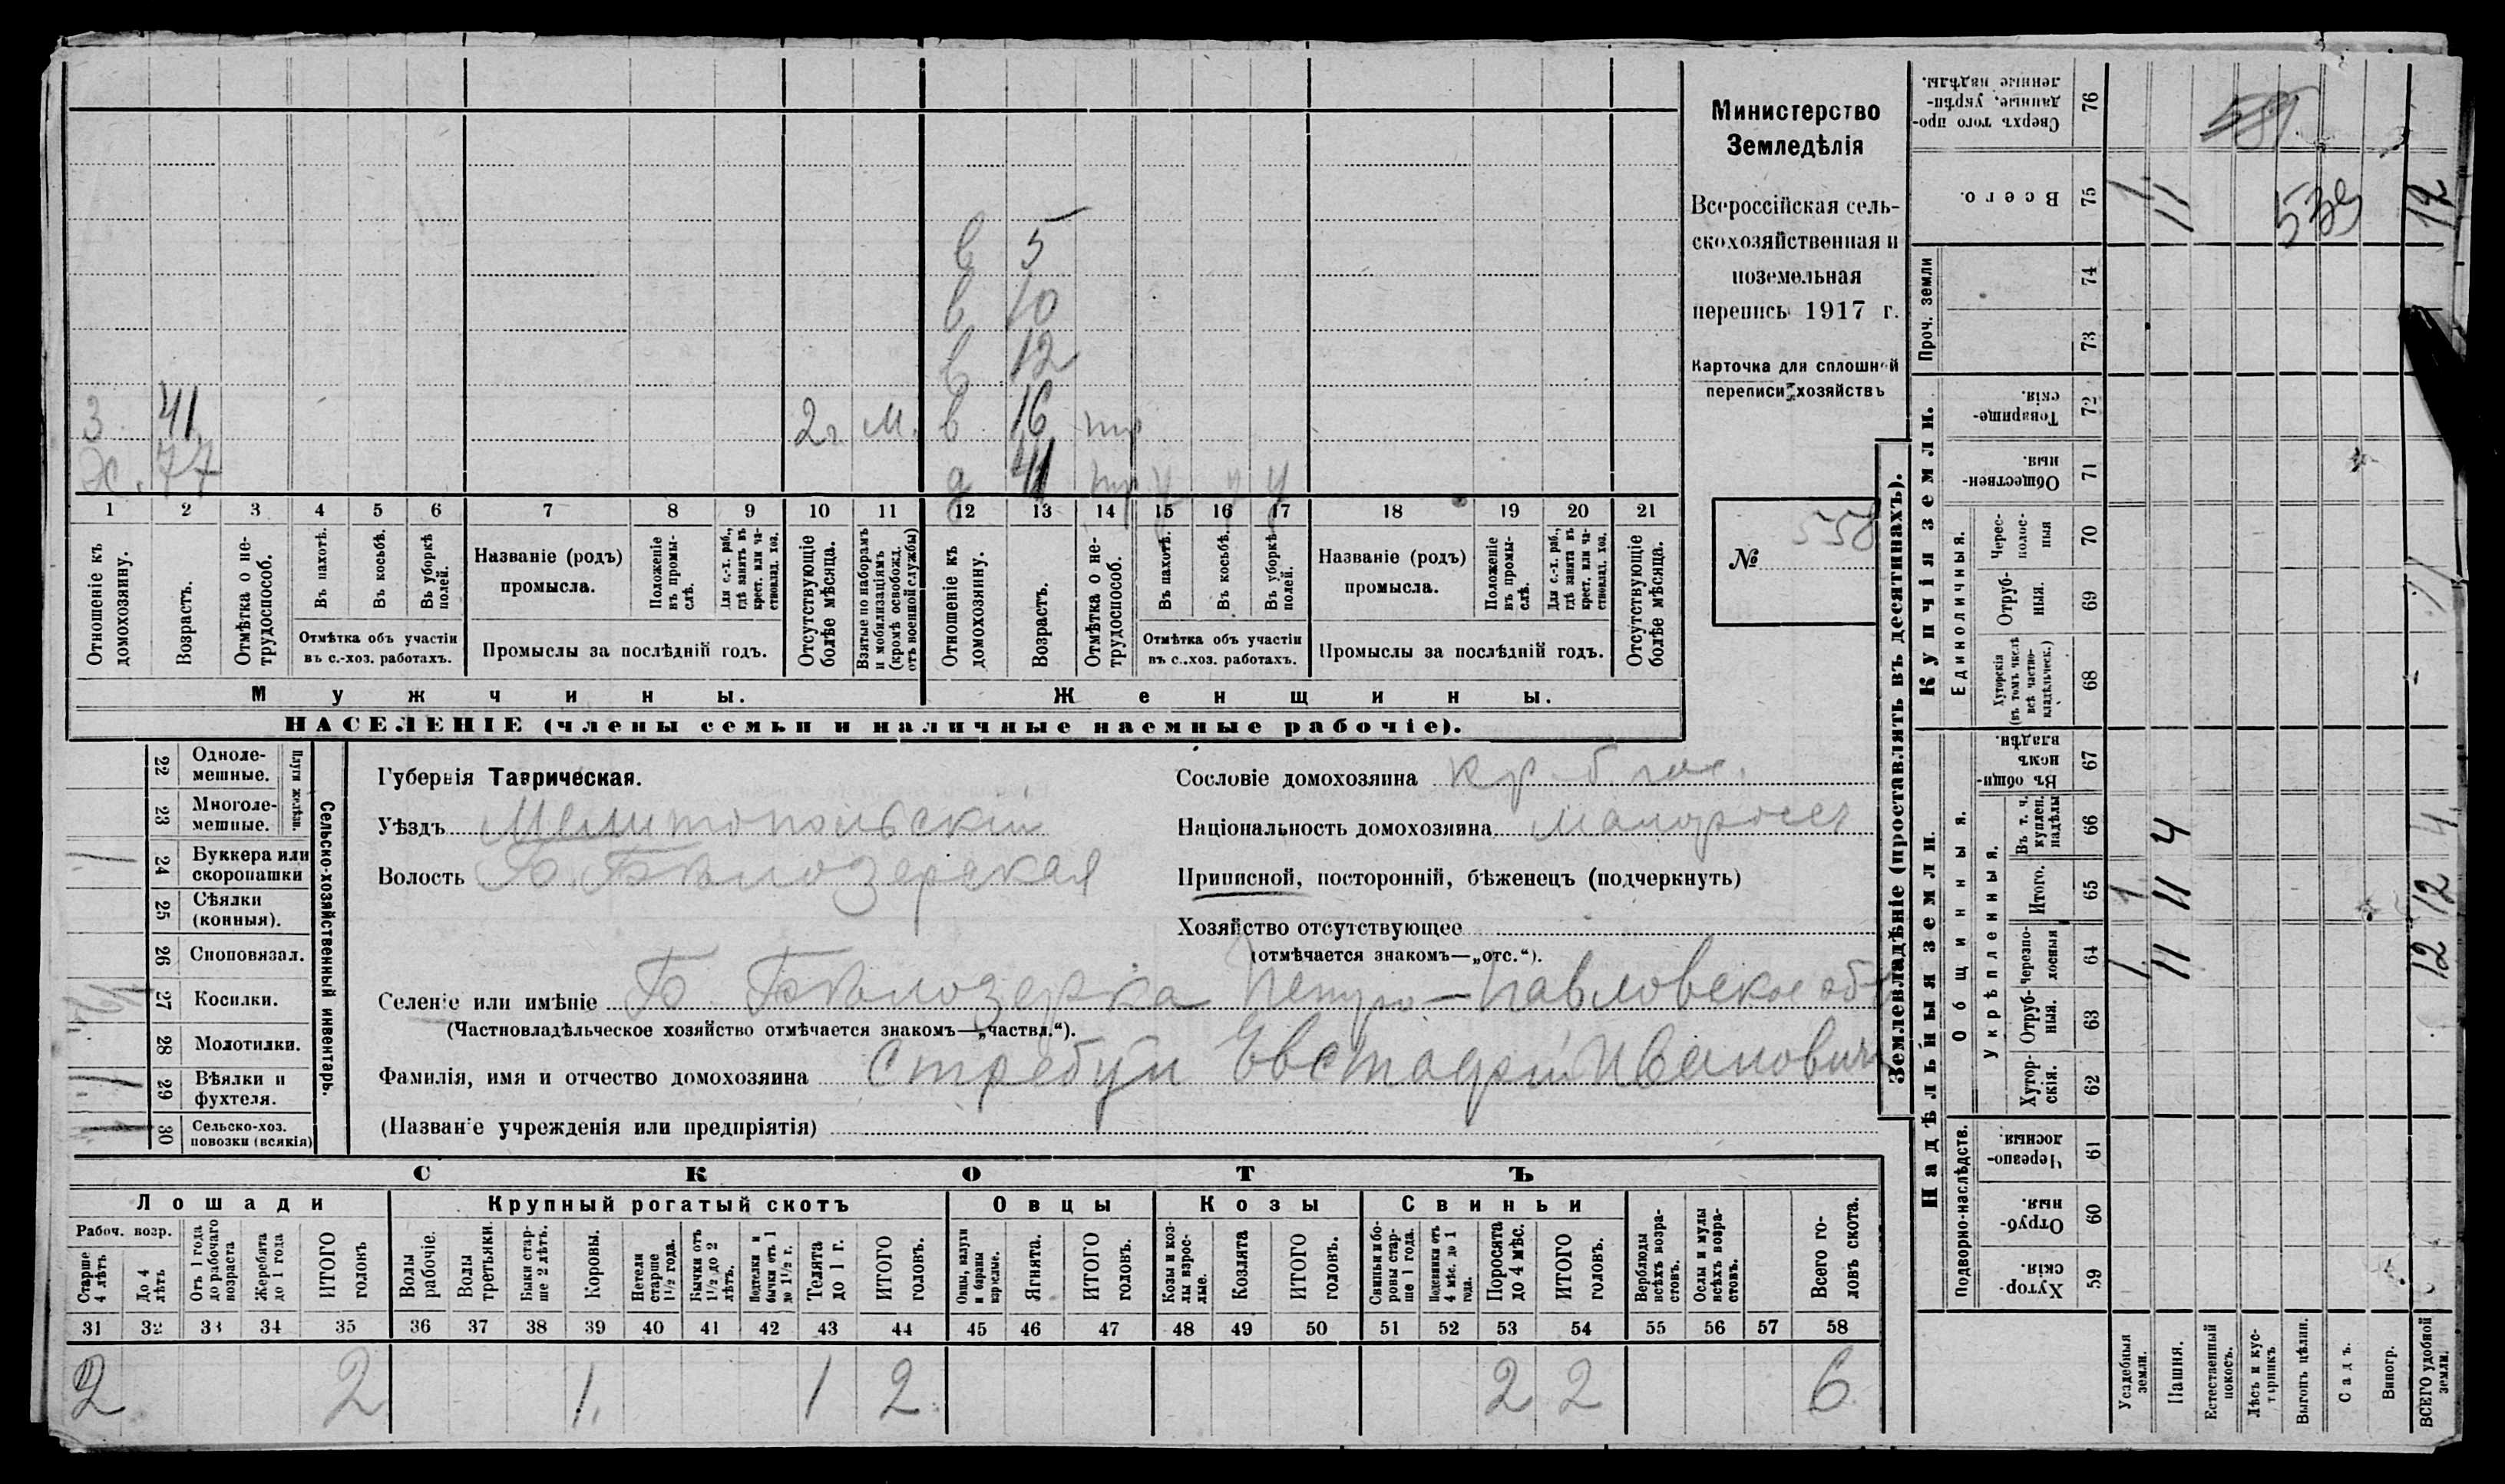 Министерство
Земледѣлія
Всероссійская сель-
скохозяйственная и
поземельная
перепись 1917 г.
Карточка для сплошной
переписи хозяйствъ
№ 558
в 5
в 10
в 12
З 41 2 г. м. в 16 тр
Х. 77 д 41 тр у у у
1 2 3 4 5 6 7 8 9 10 11 12 13 14 15 16 17 18 19 20 21
Отношеніе къ домохозяину.
Возрастъ.
Отмѣтка о не-трудоспособ.
Въ пахотѣ.
Въ косьбѣ.
Въ уборкѣ полей.
Отмѣтка объ участіи
въ с.-хоз. работахъ.
Названіе (родъ)
промысла.
Положеніе въ промы-слѣ.
Для с.-х. раб., гдѣ занятъ въ крест. или ча-стновлад. хоз.
Промыслы за послѣдній годъ.
Отсутствующіе болѣе мѣсяца.
Взятые по наборамъ и мобилизаціямъ (кромѣ освобожд. отъ военной службы)
Отношеніе къ домохозяину.
Возрастъ.
Отмѣтка о не-трудоспособ.
Въ пахотѣ.
Въ косьбѣ.
Въ уборкѣ полей.
Отмѣтка объ участіи
въ с.-хоз. работахъ.
Названіе (родъ)
промысла.
Положеніе въ промы-слѣ.
Для с.-х. раб., гдѣ занята въ крест. или ча-стновлад. хоз.
Промыслы за послѣдній годъ.
Отсутствующіе болѣе мѣсяца.
Мужчины. Женщины.
НАСЕЛЕНІЕ (члены семьи и наличные наемные рабочіе).
Сельско-хозяйственный инвентарь.
Плуги желѣзн.
22 Одноле-мешные.
23 Многоле-мешные.
1 24 Буккера или скоропашки
25 Сѣялки (конныя).
26 Сноповязал.
27 Косилки.
28 Молотилки.
1 29 Вѣялки и фухтеля.
1 30 Сельско-хоз. повозки (всякія)
Губернія Таврическая.
Уѣздъ Мелитопольскій
Волость Б. Бѣлозерская
Сословіе домохозяина
Національность домохозяина малоросс
Приписной, посторонній, бѣженецъ (подчеркнуть)
Хозяйство отсутствующее
(отмѣчается знакомъ—„отс.“).
Селеніе или имѣніе Б. Бѣлозерка Петро-Павловское об
(Частновладѣльческое хозяйство отмѣчается знакомъ—„частвл.“).
Фамилія, имя и отчество домохозяина Стребуй Евстафій Иванович
(Названіе учрежденія или предпріятія)
СКОТЪ
Лошади Крупный рогатый скотъ Овцы Козы Свиньи
Рабоч. возр.
Старше 4 лѣтъ
До 4 лѣтъ
Отъ 1 года до рабочаго возраста
Жеребята до 1 года
ИТОГО головъ
Волы рабочіе.
Волы третьяки.
Быки стар-ше 2 лѣтъ.
Коровы.
Нетели старше 1½ года.
Бычки отъ 1½ до 2 лѣтъ.
Подтелки и бычки отъ 1 до 1½ г.
Телята до 1 г.
ИТОГО головъ.
Овцы, валухи и бараны взрослые.
Ягнята.
ИТОГО головъ.
Козы и коз-лы взрос-лые.
Козлята
ИТОГО головъ.
Свиньи и бо-ровы стар-ше 1 года.
Подсвинки отъ 4 мѣс. до 1 года.
Поросята до 4 мѣс.
ИТОГО головъ.
Верблюды всѣхъ возра-стовъ.
Ослы и мулы всѣхъ возра-стовъ.
Всего го-ловъ скота.
31 32 33 34 35 36 37 38 39 40 41 42 43 44 45 46 47 48 49 50 51 52 53 54 55 56 57 58
2 2 1. 1 2 2 2 6
Землевладѣніе (проставлять въ десятинахъ).
Купчія земли.
Надѣльныя земли.
Проч. земли
Сверхъ того про-данные, укрѣп-ленные надѣлы. 76
Всего. 75 1 11 12
539
74
73
Товарище-скія. 72
Обществен-ныя. 71
Единоличныя.
Черес-полос-ныя 70
Отруб-ныя. 69
Хуторскія (въ томъ числѣ всѣ частно-владѣльческ.) 68
Общинныя.
Въ общи-номъ владѣн. 67
Укрѣпленныя.
Въ т. ч. куплен. надѣлы 66 4 4
Итого. 65 1 11 12
Черезпо-лосныя 64 1 11 12
Отруб-ныя. 63
Хутор-скія. 62
Подворно-наслѣдств.
Черезпо-лосныя. 61
Отруб-ныя. 60
Хутор-скія. 59
Усадебныя земли.
Пашня.
Естественный покосъ.
Лѣсъ и кус-тарникъ
Выгонъ цѣлин.
Садъ.
Виногр.
ВСЕГО удобной земли.